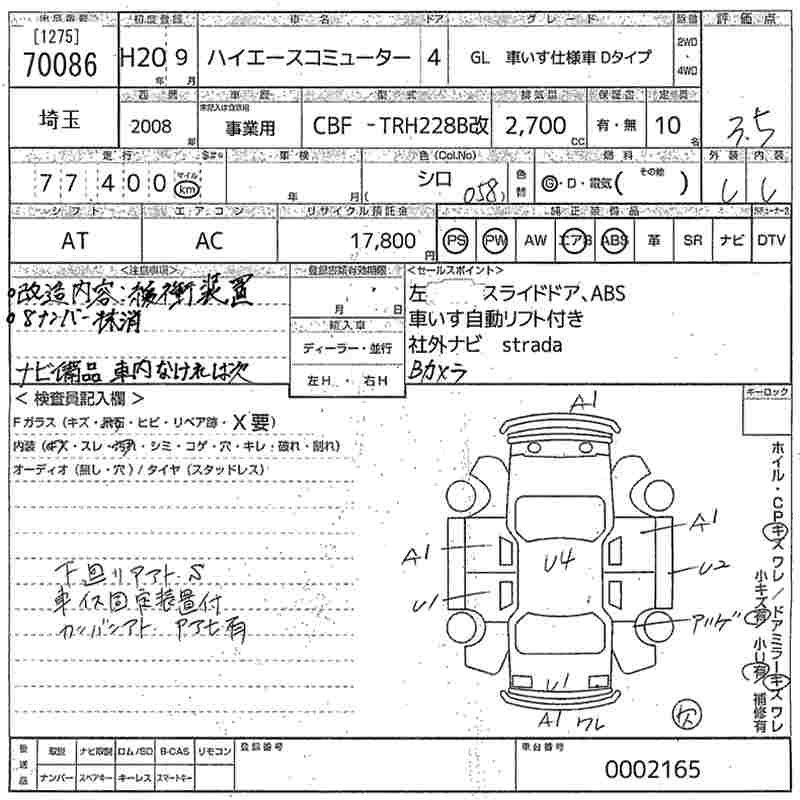 出品番号 初度登録 車名 ドア グレード 駆動 評価点
[1275]
70086 H20年 9月 ハイエースコミューター 4 GL 車いす仕様車 Dタイプ 2WD・4WD
3.5
西暦 車歴 型式 排気量 保証書 定員
未記入は自家用
埼玉 2008年 事業用 CBF -TRH228B改 2,700cc 有・無 10名
走行 車検 色(Col,No) 燃料 外装 内装
77400 マイル km 年 月 シロ 058 色替 G・D・電気( その他 )
シフト エアコン リサイクル預託金 純正装備品
AT AC 17,800円 PS PW AW エアB ABS 革 SR ナビ DTV
<注意事項>
改造内容:緩衝装置
8ナンバー抹消
ナビ備品 車内なければ次
登録書類有効期限
月 日
輸入車
ディーラー・並行
左H・右H
<セールスポイント>
左 スライドドア、ABS
車いす自動リフト付き
社外ナビ strada
Bカメラ
キーロック
< 検査員記入欄 >
Fガラス (キズ・飛石・ヒビ・リペア跡・X要)
内装 (キズ・スレ・汚れ・シミ・コゲ・穴・キレ・破れ・割れ)
オーディオ (無し・穴) / タイヤ (スタッドレス)
下廻リアアト S
車イス固定装置付
カンバンアト
有
A1
A1
A1
U4
U2
U1
U1
A1 ワレ
欠
ホイル・CPキズ ワレ / ドアミラーキズ ワレ
小キズ有 小U有 補修有
後送品 取説 ナビ取説 ロム/SD B-CAS リモコン 登録番号 車台番号
ナンバー スペアキー キーレス スマートキー 0002165